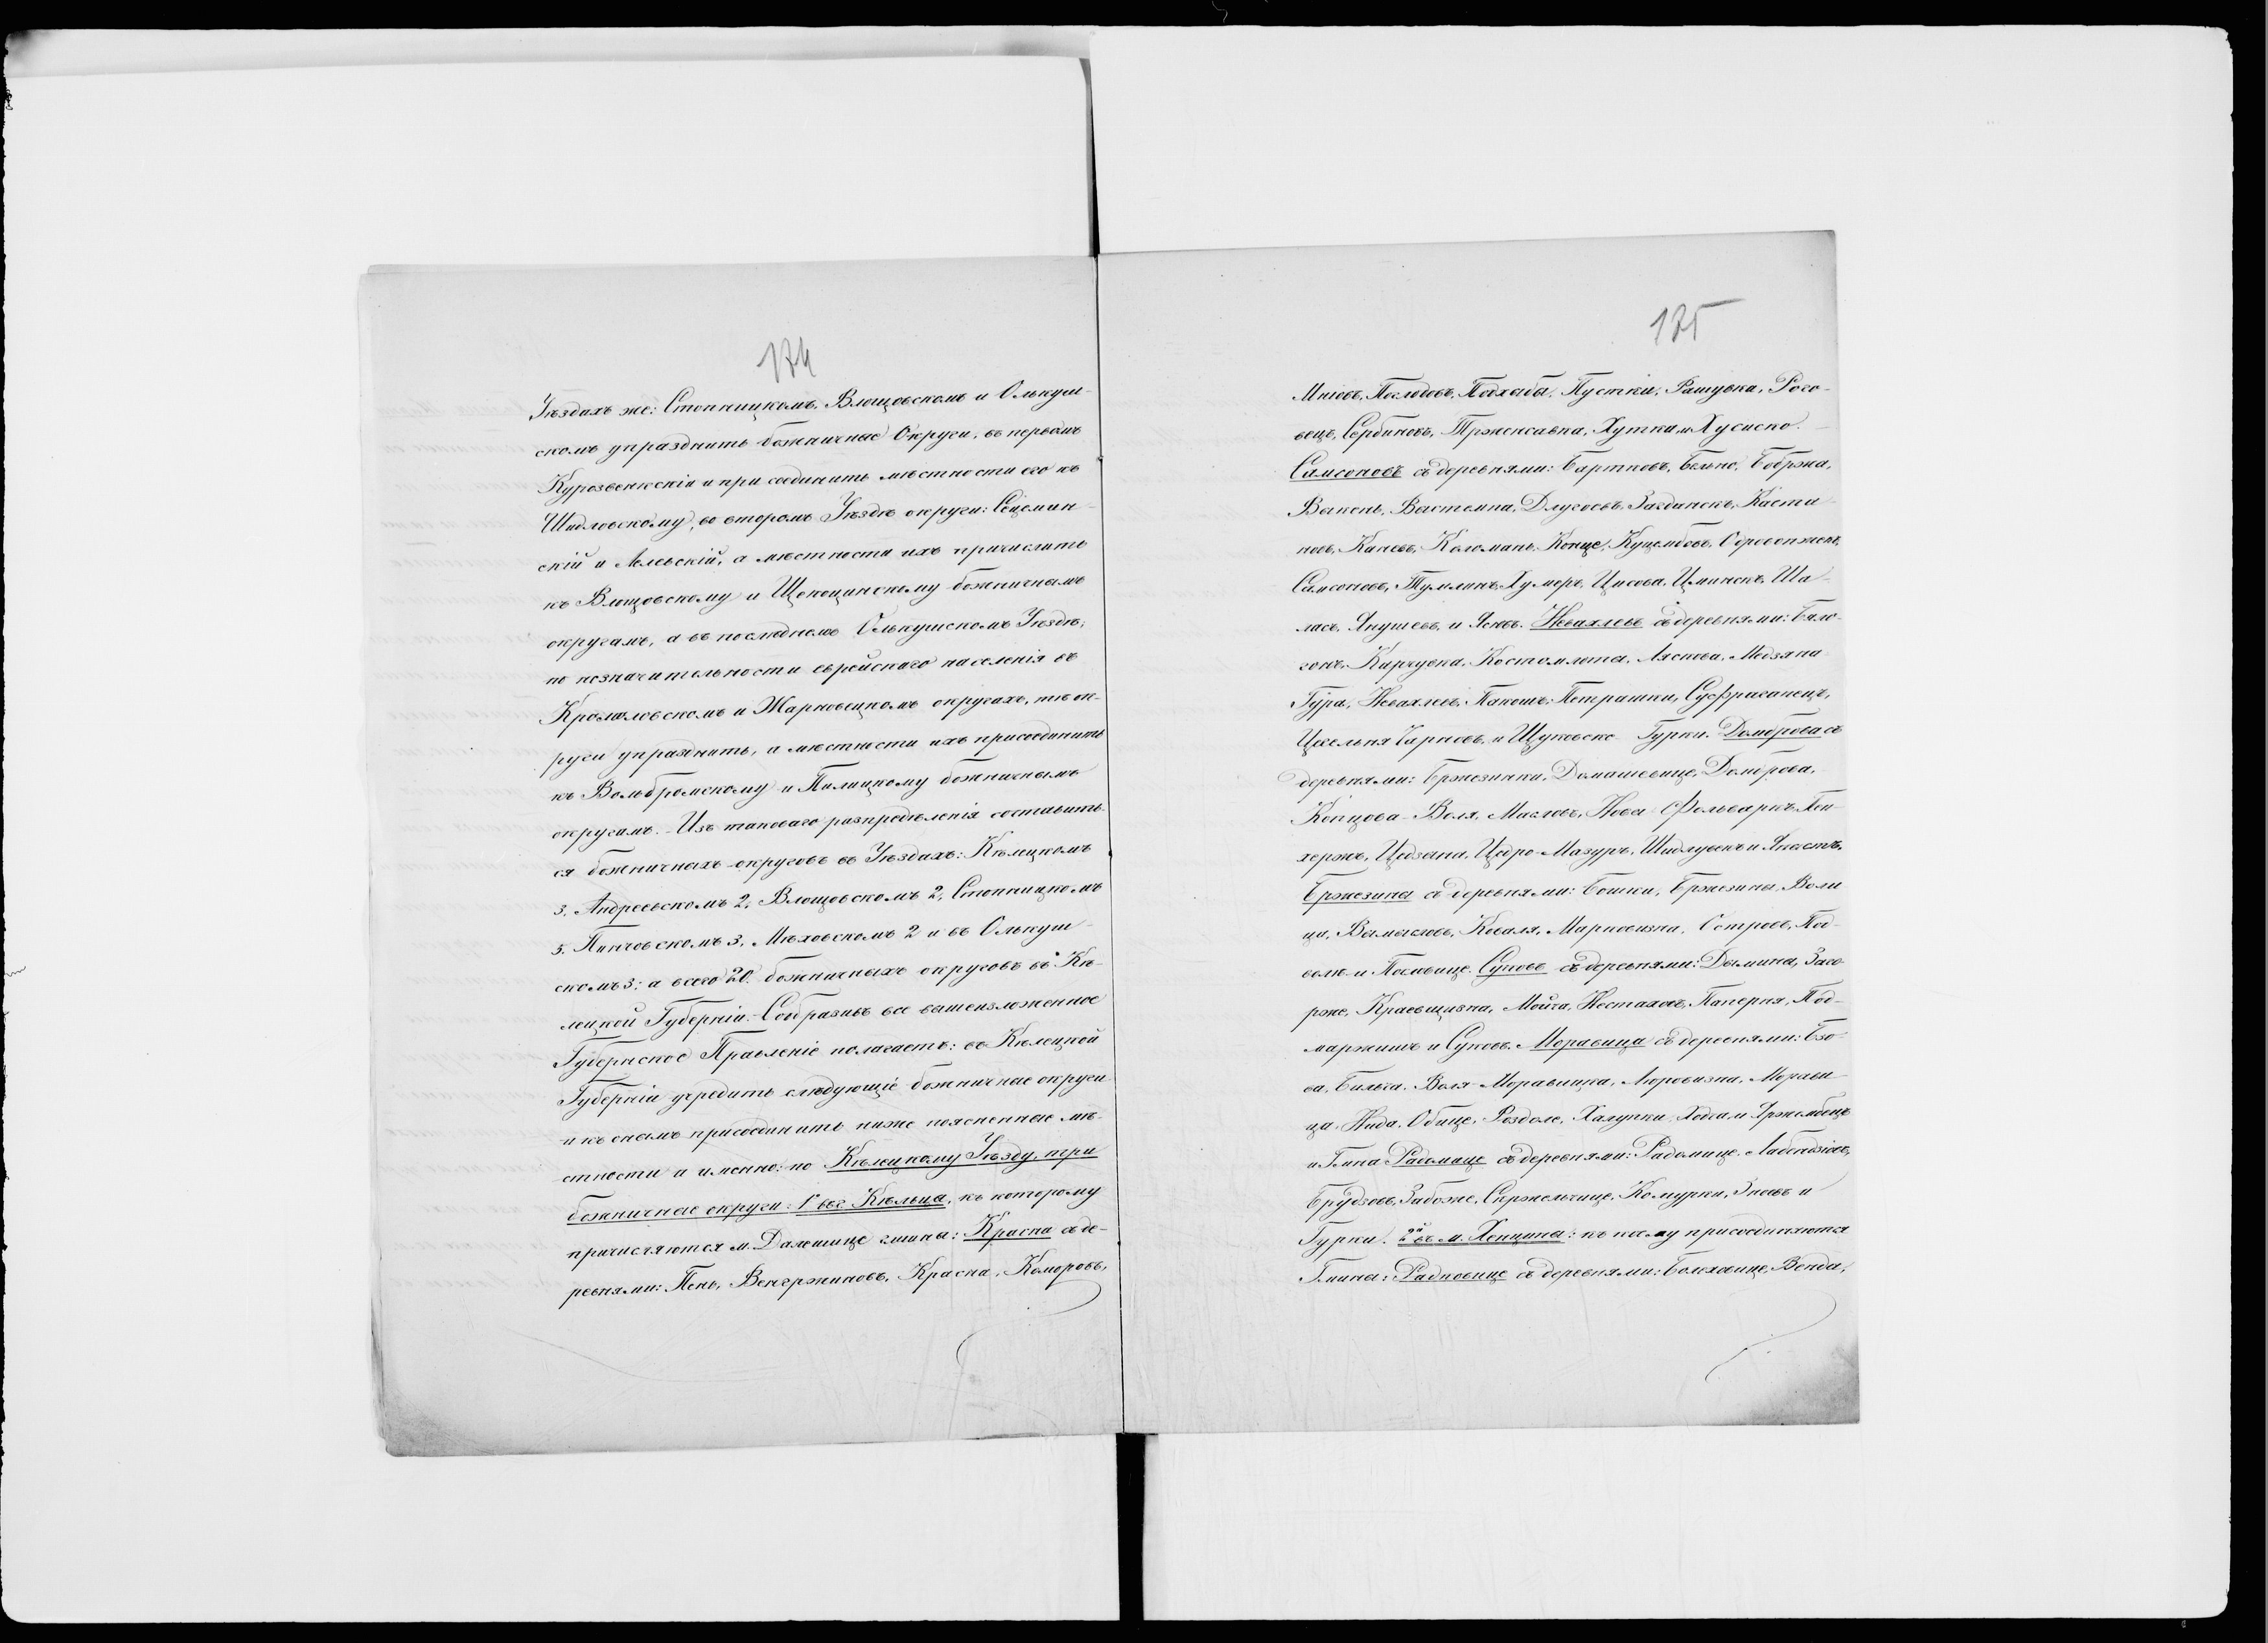 174
Уѣздахъ же: Стопницкомъ, Влощовскомъ и Олькуш-
скомъ упразднить божничные Округи, въ первомъ
Курозвенкскій и присоединить мѣстности его къ
Шидловскому, во второмъ Уѣздѣ округи: Сецемин-
скій и Лелевскій, а мѣстности ихъ причислить
къ Влощовскому и Щекоцинскому божничнымъ
округамъ, а въ послѣднемъ Олькушскомъ Уѣздѣ,
по незначительности еврейскаго населенія въ
Кромоловскомъ и Жарновецкомъ округахъ, тѣ ок-
руги упразднить, а мѣстности ихъ присоединить
къ Вольбромскому и Пилицкому божничнымъ
округамъ. Изъ таковаго разпредѣленія составить-
ся божничныхъ округовъ въ Уѣздахъ: Кѣлецкомъ
3, Андреевскомъ 2, Влощовскомъ 2, Стопницкомъ
5, Пинчовскомъ 3, Мѣховскомъ 2 и въ Олькуш-
скомъ 3: а всего 20. божничныхъ округовъ въ Кѣ-
лецкой Губерніи. Сообразивъ все вышеизложенное
Губернское Правленіе полагаетъ: въ Кѣлецкой
Губерніи учредить слѣдующіе божничные округи
и къ онымъ присоединить ниже поясненные мѣ-
стности а именно: по Кѣлецкому Уѣзду три
божничные округи: 1й въ г. Кѣльцы, къ которому
причисляются м. Далешице гмины: Красна съ де-
ревнями: Пень, Венгржиновъ, Красна, Коморовъ,
175
Мніовъ, Пеглодовъ, Подхыбы, Пустки, Рашувка, Рого-
вецъ, Сербиновъ, Тржензавка, Хутки и Хусиско.
Самсоновъ съ деревнями: Бартковъ, Бельно, Бобржа,
Выкень, Выстемпа, Длугоевъ, Загдинскъ, Касти-
новъ, Каневъ, Коломань, Конце, Куцембовъ, Одровонжекъ,
Самсоновъ, Тумлинъ, Хумеръ, Цисова, Цминскъ, Ша-
ласъ, Янушевъ, и Ясювъ. Невахлевъ съ деревнями: Бяло-
гонъ, Карчувка, Костомлоты, Ляскова, Медзяна
Гура, Невахлевъ, Пакошъ, Петрашки, Суфраганецъ,
Цегельня Чарновъ, и Щуковске Гурки. Домброва съ
деревнями: Бржезинки, Домашевице, Домброва,
Копцова-Воля, Масловъ, Нова-Фольваркъ, Пен-
хержъ, Цедзына, Цедро-Мазуръ, Шидлувекъ и Ямастъ,
Бржезины съ деревнями: Бошки, Бржезины, Воли-
ца, Вымысловъ, Коваля, Марковизна, Островъ, Под-
воле и Посновице. Суковъ съ деревнями: Дымины, Заго-
рже, Краевщизна, Мойча, Нестаховъ, Паперня, Под-
маржишъ и Суковъ. Моравица съ деревнями: Бзо-
ва, Билька, Воля-Моравицка, Люровизна, Морави-
ца, Нида, Обице, Роздоле, Халупки, Хода и Држембецъ
и Гмина Радомице съ деревнями: Радомице, Лабендзіовъ,
Брудзовъ, Забоже, Скржельчице, Комурки, Зновъ и
Гурки. 2й въ м. Хенцины: къ коему присоединяются
Гмина: Радковице съ деревнями: Болеховице, Вонда,